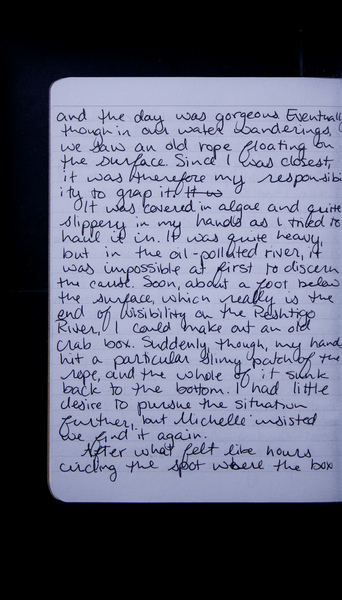 and the day was gorgeous. Eventually
though in our water wanderings,
we saw an old rope floating on
the surface. Since I was closest,
it was therefore my responsibi
ity to grap it. It w
It was covered in algae and quite
slippery in my hands as I tried to
haul it in. It was quite heavy,
but in the oil-polluted river, it
was impossible at first to discern
the cause. Soon, about a foot below
the surface, which really is the
end of visibility on the Peshtigo
River, I could make out an old
crab box. Suddenly, though, my hand
hit a particular slimy patch of the
rope, and the whole of it sunk
back to the bottom. I had little
desire to pursue the situation
further, but Michelle insisted
we find it again.
After what felt like hours
circling the spot where the box